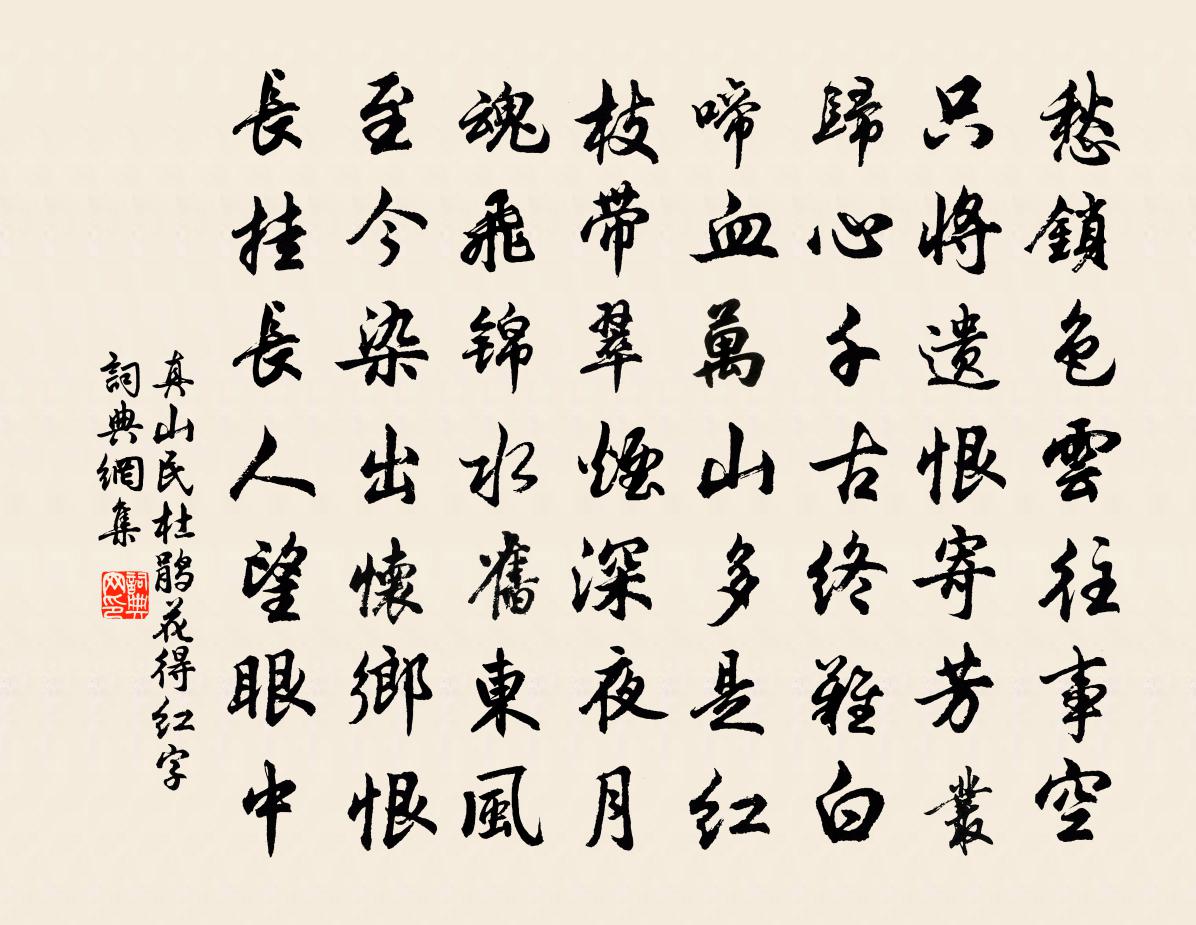 愁鎖色雲往事空
只將遗恨寄芳叢
歸心千古终難白
啼血萬山多是红
枝帶翠煙深夜月
魂飛锦水舊東風
至今染出懷鄉恨
長挂長人望眼中
真山民杜鹃花得红字
詞典網集
詞典网印